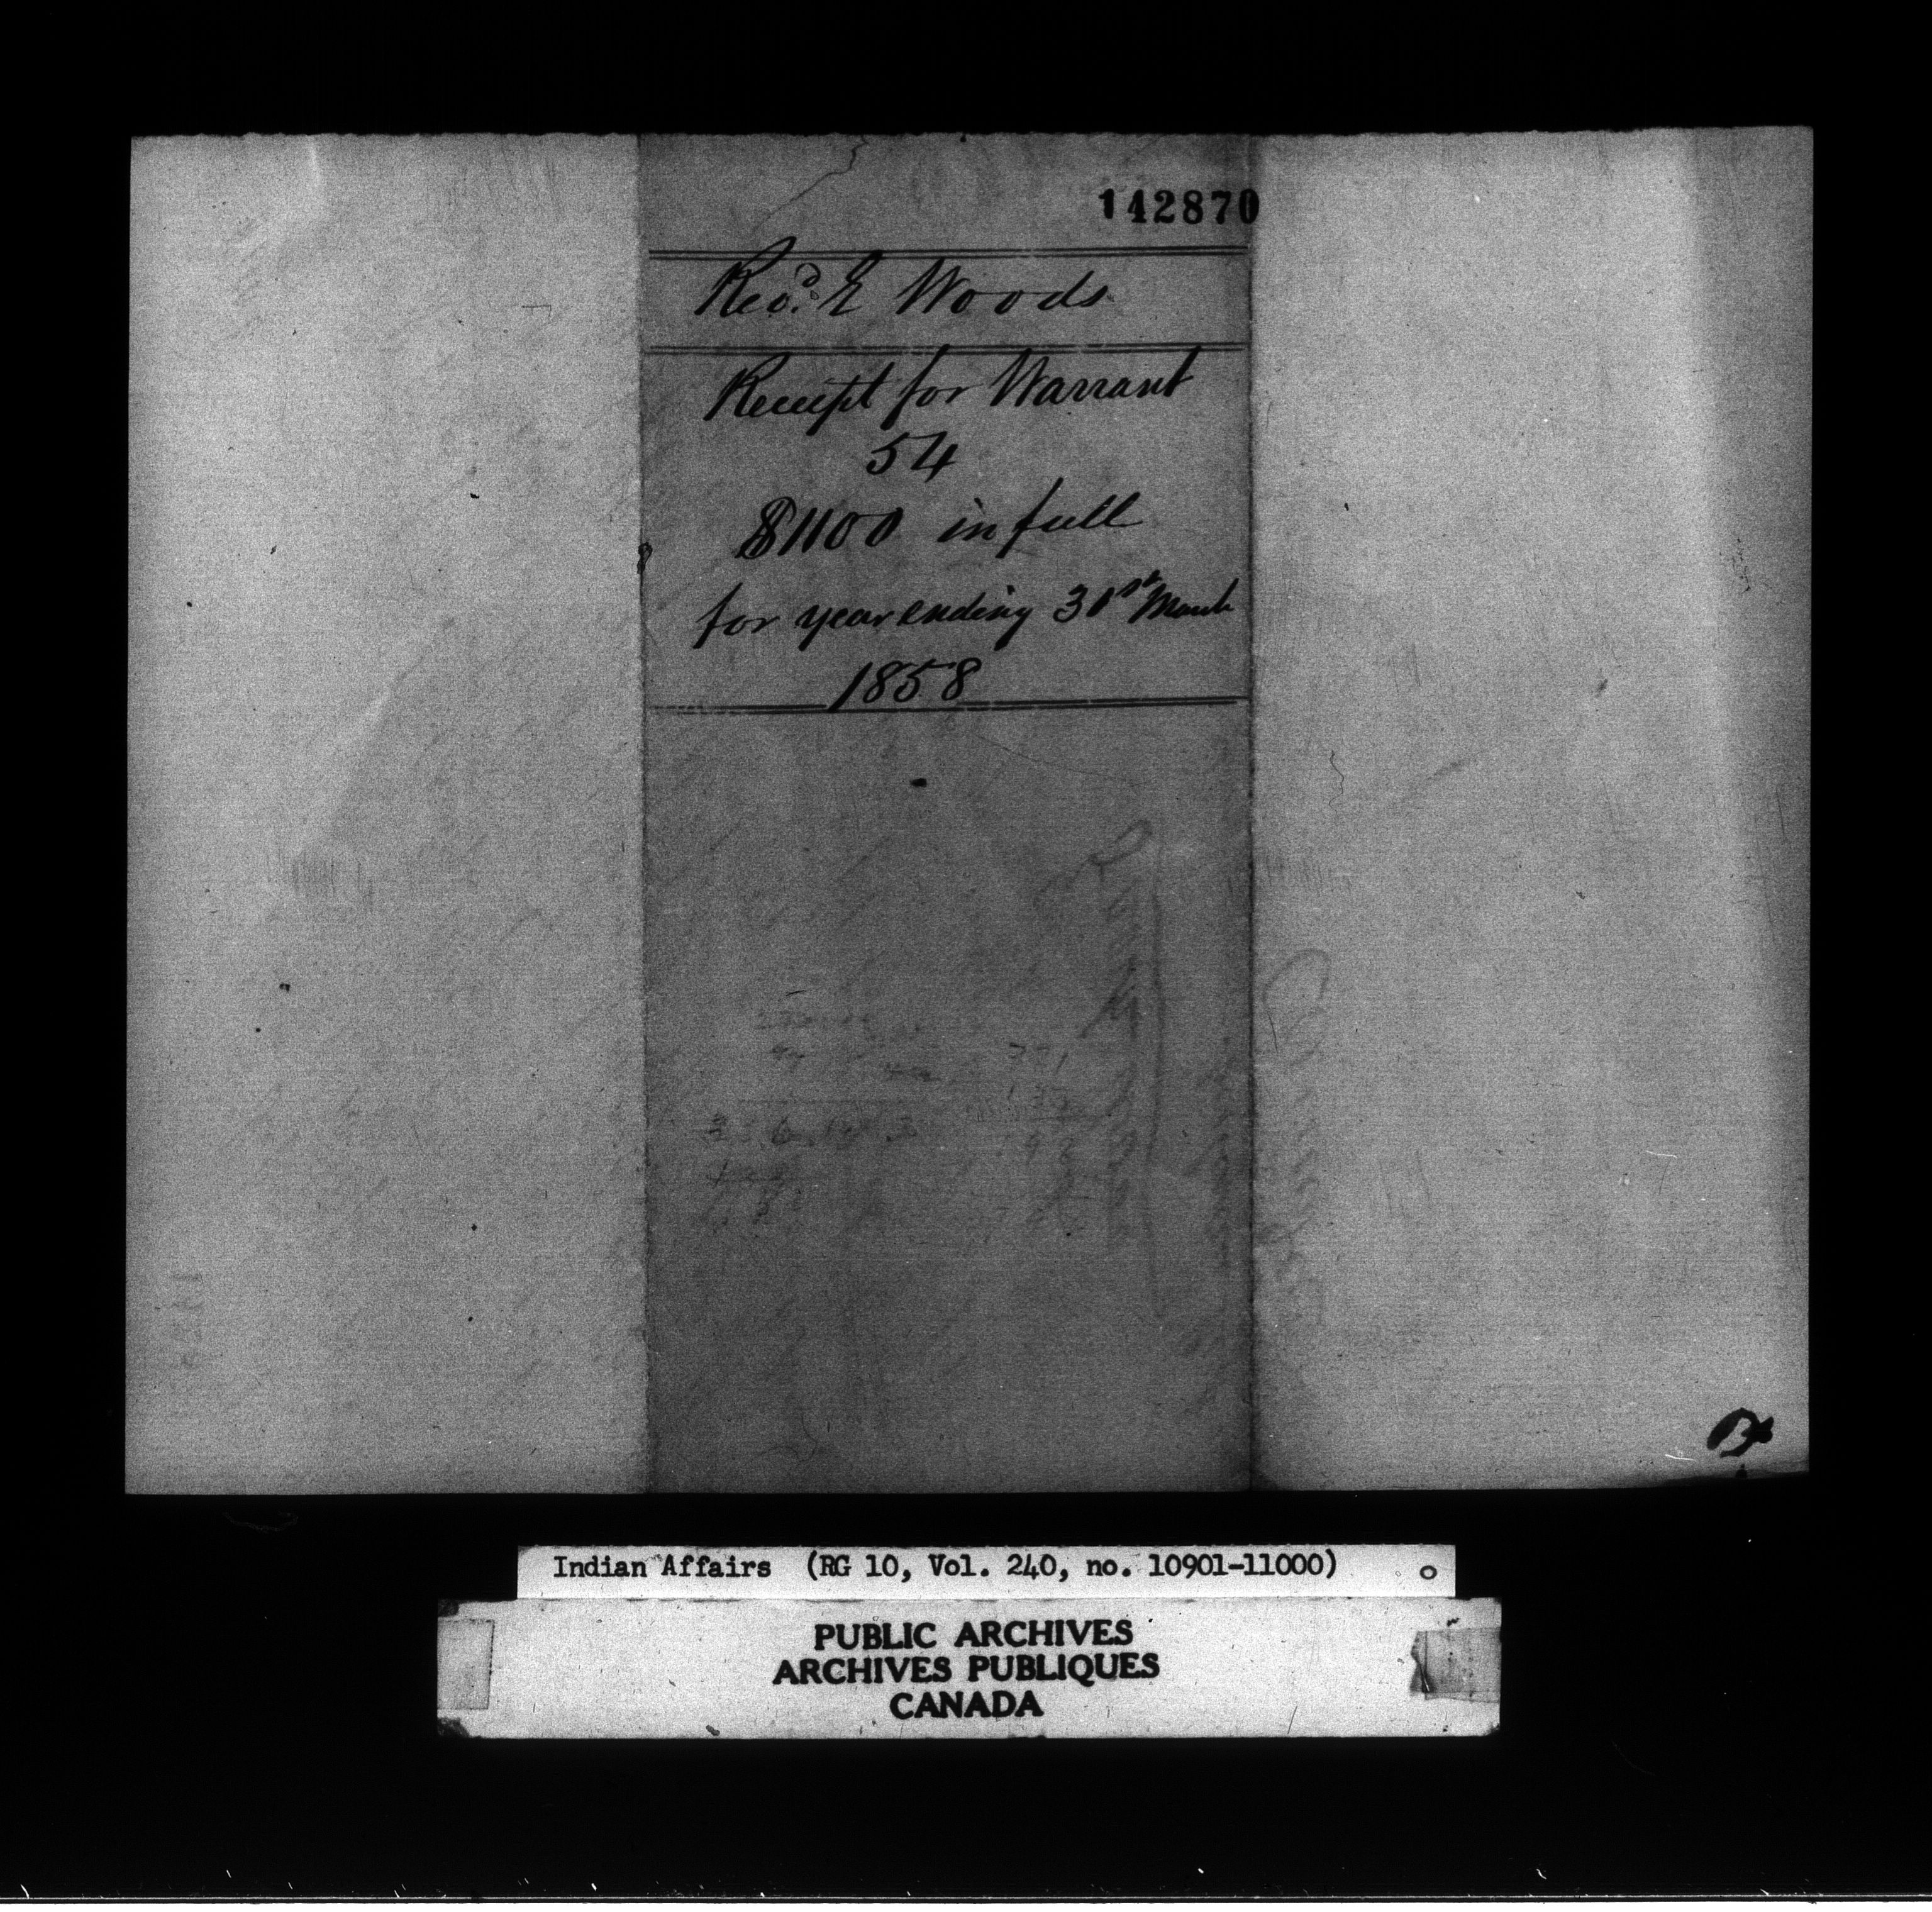 142870
Revd. E Woods
Receipt for Warrant
54
$1100 in full
for year ending 31st March
1858
Indian Affairs (RG 10, Vol. 240, no. 10901-11000)
PUBLIC ARCHIVES
ARCHIVES PUBLIQUES
CANADA